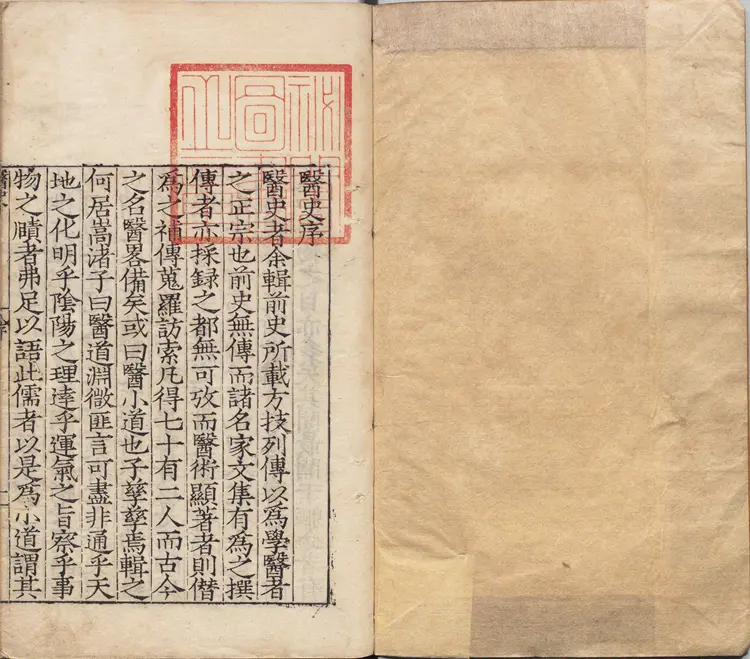 醫史序
醫史者余輯前史所載方技列傳以為學醫者
之正宗也前史無傳而諸名家文集有為之撰
傳者亦採録之都無可攷而醫術顯著者則僭
為之補傳蒐羅訪索凡得七十有二人而古今
之名醫畧備矣或曰醫小道也子孳孳焉輯之
何居嵩渚子曰醫道淵微匪言可盡非通乎天
地之化明乎陰陽之理達乎運氣之旨察乎事
物之賾者弗足以語此儒者以是為小道謂其